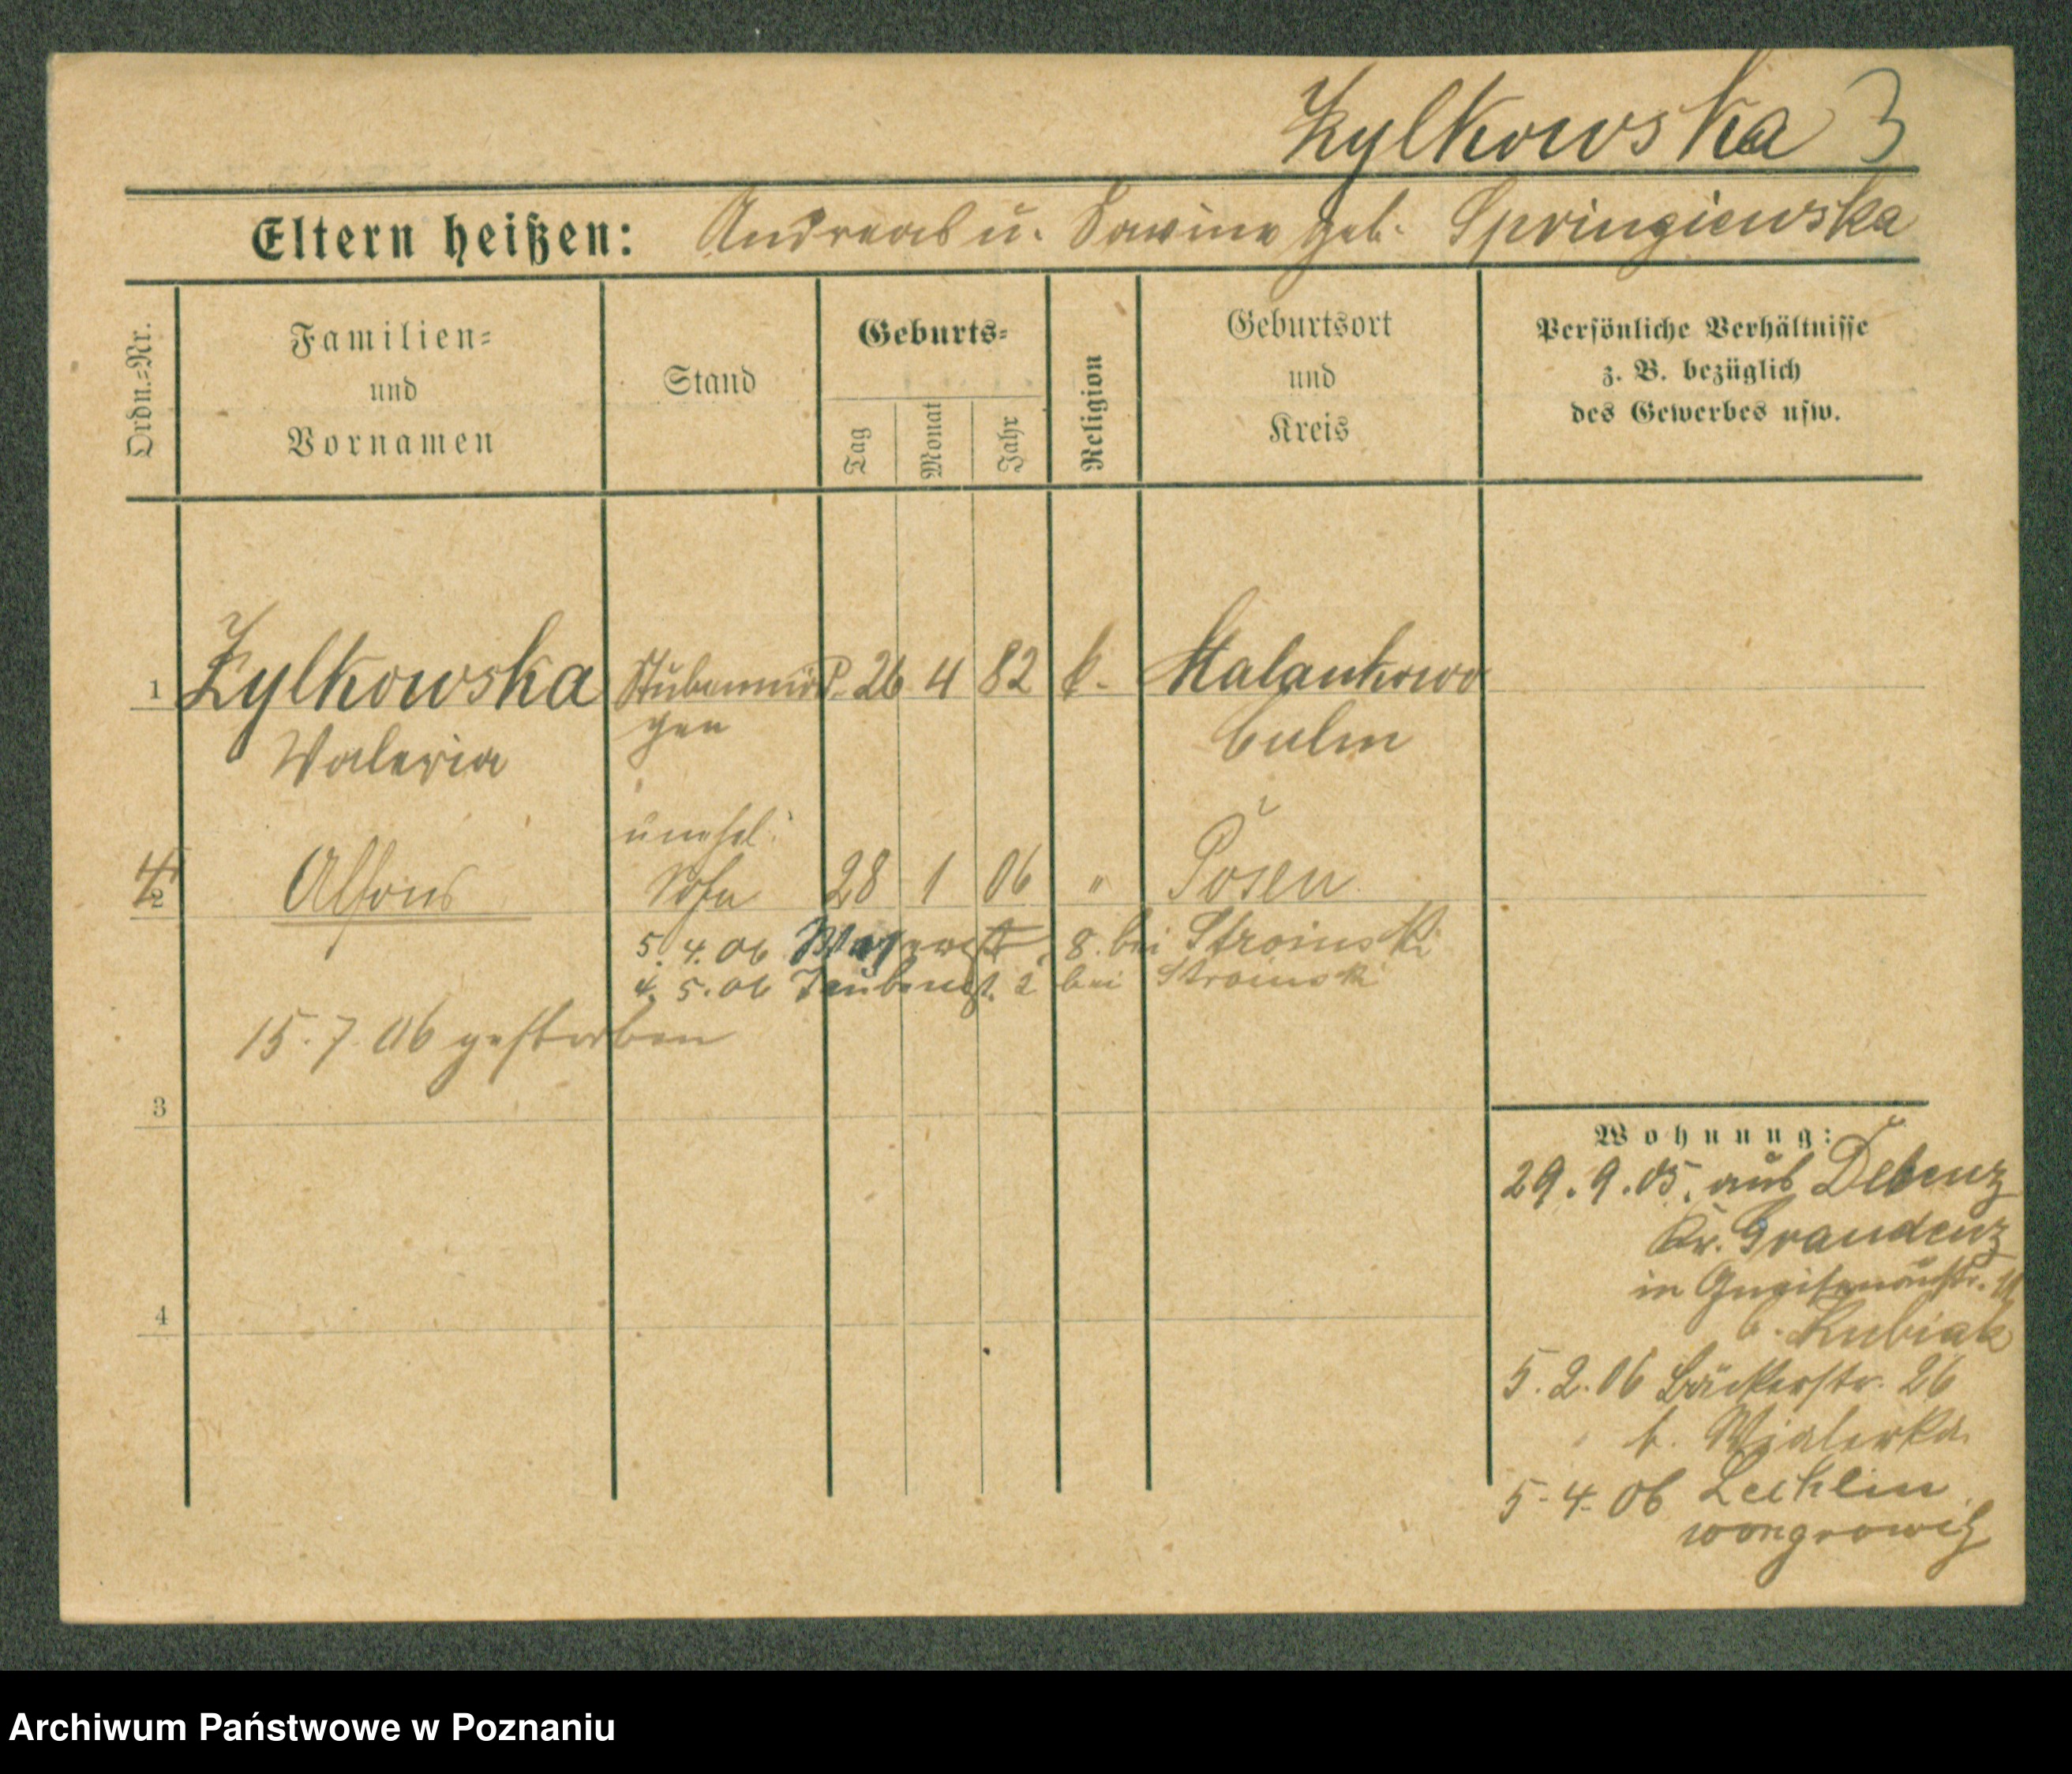 Zylkowska 3
Eltern heißen: Andreas u. geb. Springiewska
Ordn.=Nr.
Familien=
und
Vornamen
Stand
Geburts=
Tag
Monat
Jahr
Religion
Geburtsort
und
Kreis
Persönliche Verhältnisse
z. B. bezüglich
des Gewerbes usw.
1 Zylkowska Stubenmäd= 26 4 82 k. Malankowo
Valeria chen Culm
unehel.
2 Alfons Sohn 28 1 06 " Posen
5. 4. 06 8. bei Stroinski
4. 5. 06 Taubenst. 2 bei Stroinski
15. 7. 06 gestorben
3
4
Wohnung:
29. 9. 05. aus Debenz
Kr. Graudenz
in Gneisenaustr.
b. Kubiak
5. 2. 06 Bäckerstr. 26
b.
5. 4. 06 Lechlin
wongrowitz
Archiwum Państwowe w Poznaniu